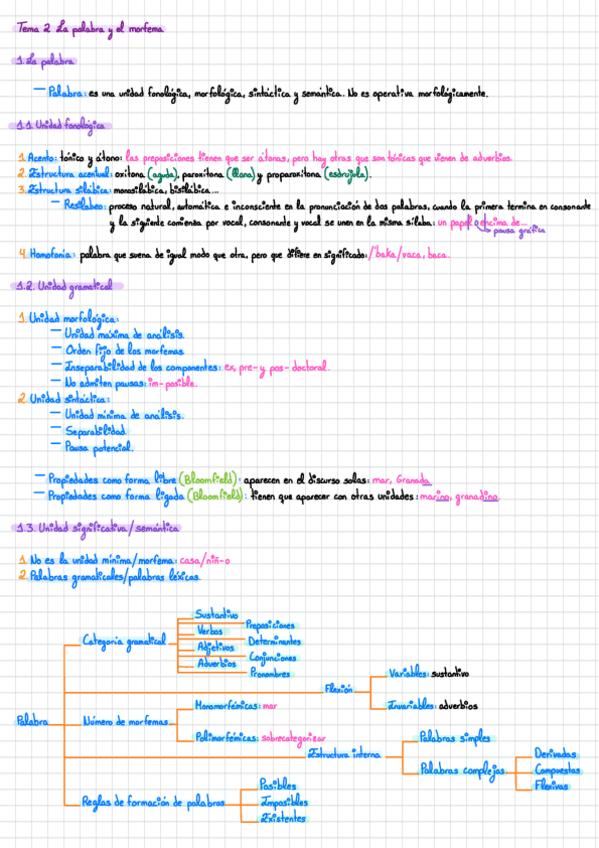 Tema 2 La palabra y el morfema
1. La palabra
— Palabra: es una unidad fonológica, morfológica, sintáctica y semántica. No es operativa morfológicamente.
1.1 Unidad fonológica
1. Acento: tónico y átono: las preposiciones tienen que ser átonas, pero hay otras que son tónicas que vienen de adverbios.
2. Estructura acentual: oxítona (aguda), paroxítona (llana) y proparoxítona (esdrújula).
3. Estructura silábica: monosilábica, bisilábica...
— Resilabeo: proceso natural, automática e inconsciente en la pronunciación de dos palabras, cuando la primera termina en consonante
y la siguiente comienza por vocal, consonante y vocal se unen en la misma sílaba: un papel encima de...
pausa gráfica
4. Homofonía: palabra que suena de igual modo que otra, pero que difiere en significado: /'baka/ vaca, baca.
1.2. Unidad gramatical
1. Unidad morfológica:
— Unidad máxima de análisis.
— Orden fijo de los morfemas.
— Inseparabilidad de los componentes: ex, pre- y pos- doctoral.
— No admiten pausas: im-posible.
2. Unidad sintáctica:
— Unidad mínima de análisis.
— Separabilidad.
— Pausa potencial.
— Propiedades como forma libre (Bloomfield): aparecen en el discurso solas: mar, Granada.
— Propiedades como forma ligada (Bloomfield): tienen que aparecer con otras unidades: marino, granadino.
1.3. Unidad significativa/semántica
1. No es la unidad mínima/morfema: casa/niñ-o
2. Palabras gramaticales/palabras léxicas.
Sustantivo
Preposiciones
Verbos
Categoría gramatical
Determinantes
Adjetivos
Conjunciones
Adverbios
Pronombres
Variables: sustantivo
Flexión
Monomorfémicas: mar
Invariables: adverbios
Palabra
Número de morfemas
Polimorfémicas: sobrecategorizar
Palabras simples
Estructura interna
Derivadas
Palabras complejas
Compuestas
Flexivas
Posibles
Reglas de formación de palabras
Imposibles
Existentes